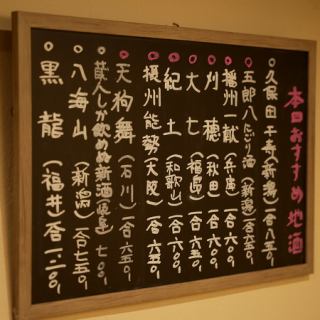 本日おすすめ地酒
○久保田 千寿(新潟)一合八五〇、
○五郎八 にごり酒(新潟)一合六五〇、
○播州一献(兵庫)一合六〇〇、
○刈穂(秋田)一合六〇〇、
○大七(福島)一合六五〇、
○紀土(和歌山)一合六〇〇、
○摂州能勢(大阪)一合六五〇、
○天狗舞(石川)一合六五〇、
○蔵人しか飲めぬ新酒 七〇〇、
○八海山(新潟)一合七五〇、
○黒龍(福井)一合一、二〇〇、